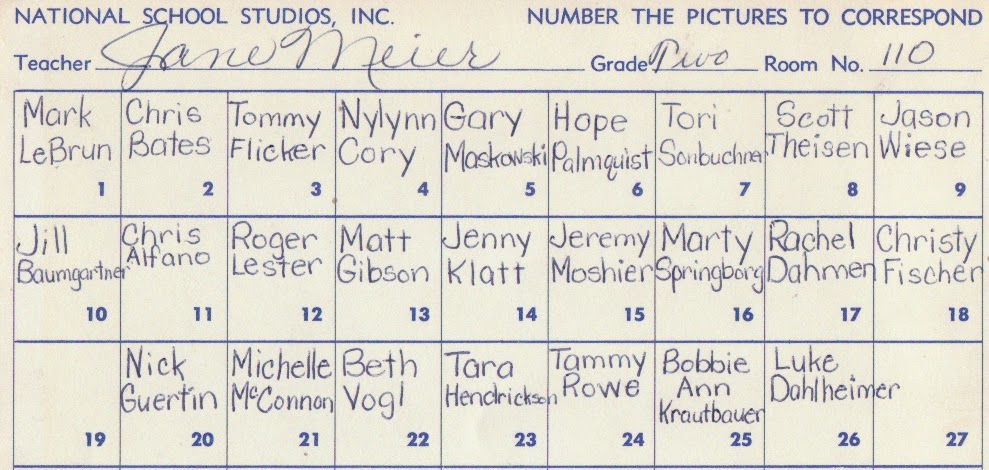 NATIONAL SCHOOL STUDIOS, INC. NUMBER THE PICTURES TO CORRESPOND
Teacher Jane Meier Grade Two Room No. 110
Mark LeBrun 1
Chris Bates 2
Tommy Flicker 3
Nylynn Cory 4
Gary Maskowski 5
Hope Palmquist 6
Tori Sonbuchner 7
Scott Theisen 8
Jason Wiese 9
Jill Baumgartner 10
Chris Alfano 11
Roger Lester 12
Matt Gibson 13
Jenny Klatt 14
Jeremy Moshier 15
Marty Springborg 16
Rachel Dahmen 17
Christy Fischer 18
19
Nick Guertin 20
Michelle McConnon 21
Beth Vogl 22
Tara Hendrickson 23
Tammy Rowe 24
Bobbie Ann Krautbauer 25
Luke Dahlheimer 26
27